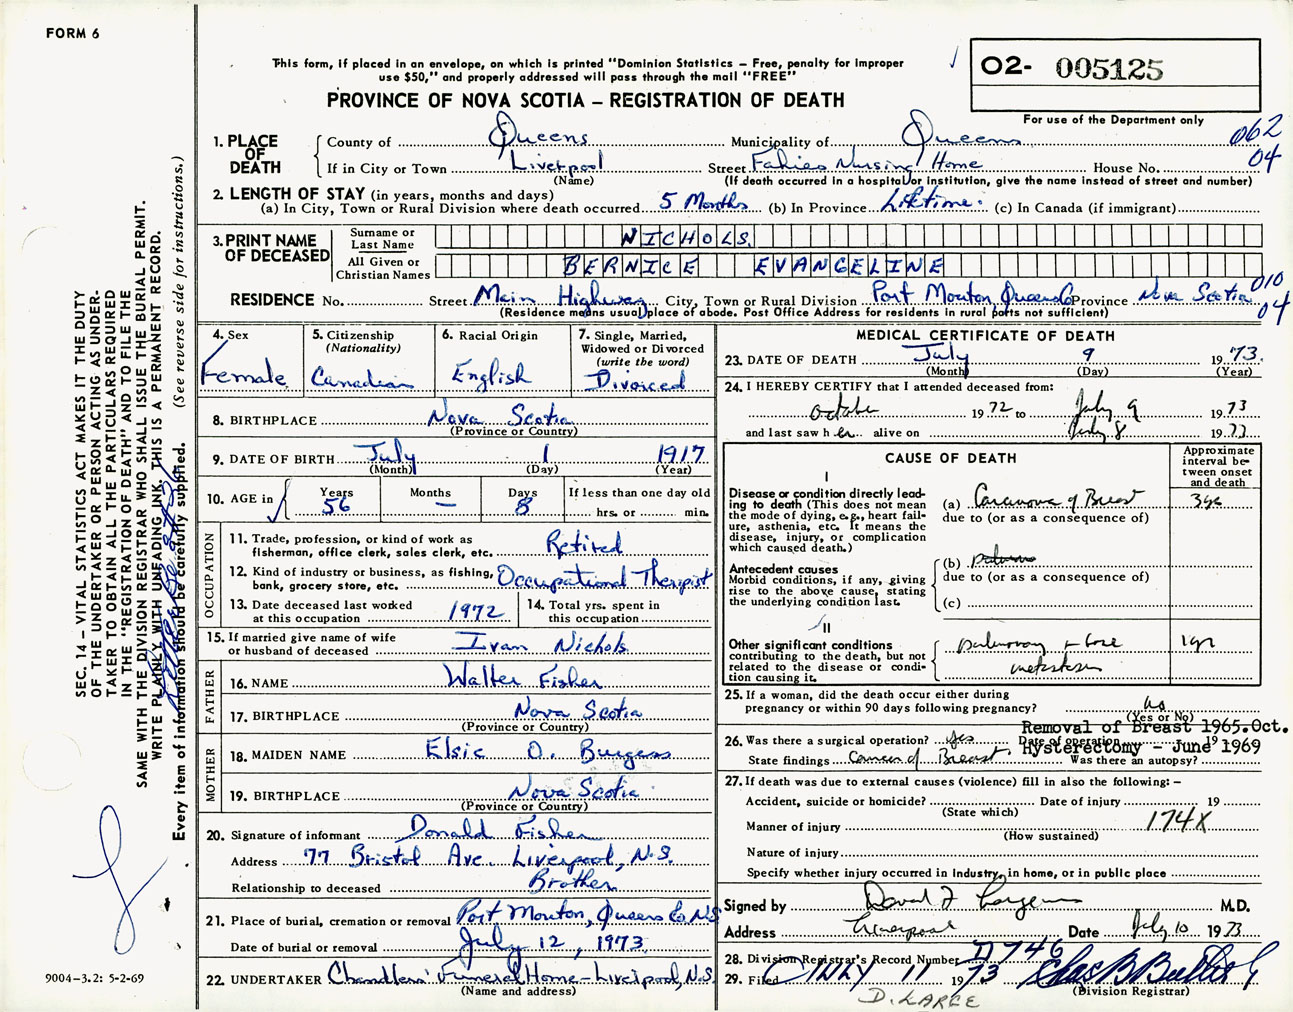 FORM 6
This form, if placed in an envelope, on which is printed "Dominion Statistics – Free, penalty for improper
use $50," and properly addressed will pass through the mail "FREE"
PROVINCE OF NOVA SCOTIA – REGISTRATION OF DEATH
O2- 005125
For use of the Department only
062
04
1. PLACE OF DEATH
County of Queens Municipality of Queens
If in City or Town Liverpool Street Fahies Nursing Home House No.
(Name) (If death occurred in a hospital or institution, give the name instead of street and number)
2. LENGTH OF STAY (in years, months and days)
(a) In City, Town or Rural Division where death occurred 5 Months (b) In Province Lifetime. (c) In Canada (if immigrant)
3. PRINT NAME OF DECEASED
Surname or Last Name NICHOLS.
All Given or Christian Names BERNICE EVANGELINE
010
04
RESIDENCE No. Street Main Highway City, Town or Rural Division Port Mouton, Queens Co Province Nova Scotia
(Residence means usual place of abode. Post Office Address for residents in rural parts not sufficient)
4. Sex
Female
5. Citizenship
(Nationality)
Canadian
6. Racial Origin
English
7. Single, Married,
Widowed or Divorced
(write the word)
Divorced
8. BIRTHPLACE Nova Scotia
(Province or Country)
9. DATE OF BIRTH July 1 1917
(Month) (Day) (Year)
10. AGE in
Years 56
Months –
Days 8
If less than one day old
hrs. or min.
OCCUPATION
11. Trade, profession, or kind of work as
fisherman, office clerk, sales clerk, etc. Retired
12. Kind of industry or business, as fishing,
bank, grocery store, etc. Occupational Therapist
13. Date deceased last worked
at this occupation 1972
14. Total yrs. spent in
this occupation
15. If married give name of wife
or husband of deceased Ivan Nichols
FATHER
16. NAME Walter Fisher
17. BIRTHPLACE Nova Scotia
(Province or Country)
MOTHER
18. MAIDEN NAME Elsie O. Burgess
19. BIRTHPLACE Nova Scotia
(Province or Country)
20. Signature of informant Donald Fisher
Address 77 Bristol Ave. Liverpool, N.S.
Relationship to deceased Brother
21. Place of burial, cremation or removal Port Mouton, Queens Co N.S
Date of burial or removal July 12, 1973
22. UNDERTAKER Chandlers' Funeral Home - Liverpool, N.S
(Name and address)
MEDICAL CERTIFICATE OF DEATH
23. DATE OF DEATH July 9 1973.
(Month) (Day) (Year)
24. I HEREBY CERTIFY that I attended deceased from:
October 1972 to July 9 1973
and last saw her alive on July 8 1973
CAUSE OF DEATH
Approximate
interval be-
tween onset
and death
I
Disease or condition directly lead-
ing to death (This does not mean
the mode of dying, e.g., heart fail-
ure, asthenia, etc. It means the
disease, injury, or complication
which caused death.)
(a) Carcinoma of Breast 3 yrs
due to (or as a consequence of)
Antecedent causes
Morbid conditions, if any, giving
rise to the above cause, stating
the underlying condition last.
(b)
due to (or as a consequence of)
(c)
II
Other significant conditions
contributing to the death, but not
related to the disease or condi-
tion causing it.
pulmonary + bone 1 yr
metastases
25. If a woman, did the death occur either during
pregnancy or within 90 days following pregnancy? no
(Yes or No)
Removal of Breast 1965.Oct.
26. Was there a surgical operation? yes Date of operation 19
Hysterectomy – June 1969
State findings Cancer of Breast. Was there an autopsy?
27. If death was due to external causes (violence) fill in also the following: –
Accident, suicide or homicide? Date of injury 19
(State which)
Manner of injury 174X
(How sustained)
Nature of injury
Specify whether injury occurred in Industry, in home, or in public place
Signed by David F M.D.
Address Liverpool Date July 10 1973
28. Division Registrar's Record Number 11746
29. Filed JULY 11 1973
(Division Registrar)
D. LAREE
SEC. 14 – VITAL STATISTICS ACT MAKES IT THE DUTY
OF THE UNDERTAKER OR PERSON ACTING AS UNDER-
TAKER TO OBTAIN ALL THE PARTICULARS REQUIRED
IN THE "REGISTRATION OF DEATH" AND TO FILE THE
SAME WITH THE DIVISION REGISTRAR WHO SHALL ISSUE THE BURIAL PERMIT.
WRITE PLAINLY WITH UNFADING INK. THIS IS A PERMANENT RECORD.
Every item of information should be carefully supplied. (See reverse side for instructions.)
9004-3.2: 5-2-69